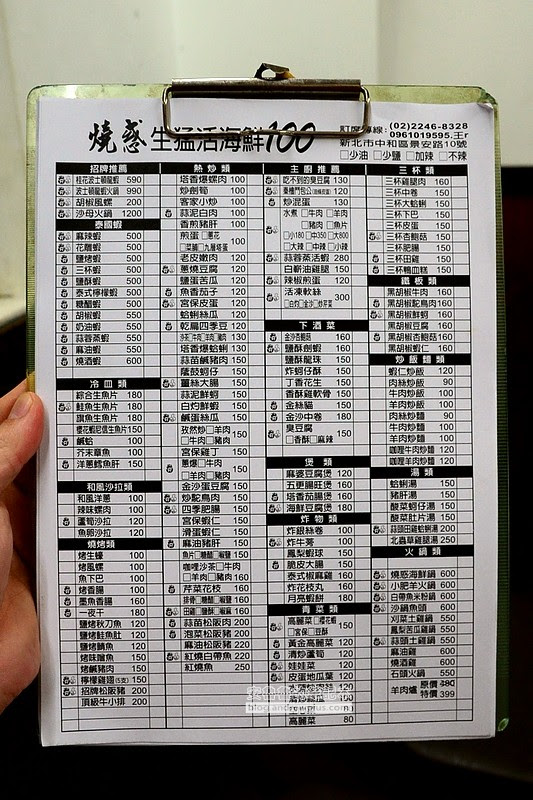 燒惑生猛活海鮮100
(02)2246-8328
0961019595.王r
新北市中和區景安路10號
□少油 □少鹽 □加辣 □不辣
招牌推薦
桂花波士頓龍蝦 590
波士頓龍蝦火鍋 990
胡椒風螺 200
沙母火鍋 1200
泰國蝦
麻辣蝦 500
花雕蝦 500
鹽烤蝦 500
三杯蝦 500
鹽酥蝦 500
泰式檸檬蝦 500
糖醋蝦 500
胡椒蝦 550
奶油蝦 550
蒜蓉蒸蝦 550
麻油蝦 550
燒酒蝦 600
冷盤類
綜合生魚片 180
鮭魚生魚片 180
旗魚生魚片 180
櫻花蝦尼信生魚片 150
鹹蛤 100
芥末章魚 100
洋蔥鱈魚肝 150
和風沙拉類
和風洋蔥 100
辣味螺肉 100
蘆筍沙拉 120
魚卵沙拉 120
燒烤類
烤生蠔 100
烤風螺 100
魚下巴 100
烤香腸 100
墨魚香腸 160
一夜干 180
鹽烤秋刀魚 120
鹽烤鮭魚肚 120
鹽烤鯖魚 120
烤味噌魚 150
烤鹹豬肉 150
檸檬雞翅(5支) 150
招牌松阪豬 200
頂級牛小排 200
熱炒類
塔香爆螺肉 100
炒劍筍 100
客家小炒 100
蒜泥白肉 100
香煎豬肝 100
煎蛋 □蔥花
□菜脯□九層塔蛋 100
老皮嫩肉 120
蔥燒豆腐 120
鹽蛋苦瓜 120
魚香茄子 120
宮保皮蛋 120
蛤蜊絲瓜 120
乾扁四季豆 120
130
塔香爆蛤蜊 130
蒜苗鹹豬肉 150
蔭鼓蚵仔 150
薑絲大腸 150
蒜泥鮮蚵 150
白灼鮮蝦 150
鹹蛋絲瓜 150
孜然炒□羊肉
□牛肉□豬肉 150
宮保雞丁 150
蔥爆□牛肉
□羊肉□豬肉 150
金沙蛋豆腐 150
炒鴕鳥肉 150
四季肥腸 150
宮保蝦仁 150
滑蛋蝦仁 150
麻油豬肝 150
魚片□糖醋□椒鹽 150
咖哩沙茶□牛肉
□羊肉□豬肉 160
芹菜花枝 160
排骨□糖醋□椒鹽 160
田雞□鹽酥□椒麻 160
蒜苗松阪肉 200
泡菜松阪豬 200
麻油松阪豬 220
紅燒白帶魚 220
紅燒魚 250
主廚推薦
吃不到的臭豆腐 130
130
炒混蛋 130
水煮 □牛肉 □羊肉
□豬肉 □魚片
□小180 □中350 □大800
□大辣 □中辣 □小辣
蒜蓉蒸活蝦 280
白斬油雞腿 150
辣椒煎蛋 120
活凍軟絲 300
下酒菜
金沙杏鮑菇 150
鹽酥劍蝦 160
鹽酥龍珠 150
炸蚵仔酥 150
丁香花生 150
香酥雞軟骨 150
金絲貓 150
金沙中卷 180
臭豆腐
□香酥□麻辣 150
煲類
麻婆豆腐煲 120
五更腸旺煲 160
塔香茄腸煲 160
海鮮豆腐煲 180
炸物類
炸銀絲卷 100
炸牛蒡 100
鳳梨蝦球 150
脆皮大腸 150
泰式椒麻雞 160
炸花枝丸 160
月亮蝦餅 180
青菜類
高麗菜□櫻花蝦
□宮保□豆酥 150
黃金高麗菜 120
清炒蘆筍 120
娃娃菜 120
皮蛋地瓜葉 120
高麗菜 80
三杯類
三杯雞腿肉 160
三杯中卷 150
三杯大蛤蜊 150
三杯下巴 150
三杯皮蛋 150
三杯杏鮑菇 150
三杯肥腸 150
三杯田雞 150
三杯鴨血糕 150
鐵板類
黑胡椒牛肉 160
黑胡椒鴕鳥肉 160
黑胡椒鮮蚵 160
黑胡椒豆腐 160
黑胡椒羊肉 160
黑胡椒蝦仁 160
炒飯麵類
蝦仁炒飯 110
肉絲炒飯 90
牛肉炒飯 100
羊肉炒飯 100
肉絲炒麵 90
牛肉炒麵 100
羊肉炒麵 100
咖哩牛肉炒麵 120
咖哩羊肉炒麵 120
湯類
蛤蜊湯 150
豬肝湯 150
酸菜蚵仔湯 150
酸菜肚片湯 150
蒜頭田雞蛤蜊湯 200
北蟲草雞湯 250
火鍋類
燒惑海鮮鍋 600
小肥羊火鍋 600
白帶魚米粉鍋 600
沙鍋魚頭 600
刈菜土雞鍋 550
鳳梨苦瓜雞鍋 550
蒜頭土雞鍋 550
麻油雞 600
燒酒雞 600
石頭火鍋 550
羊肉爐 原價480
特價399
blog.andrewplus.com